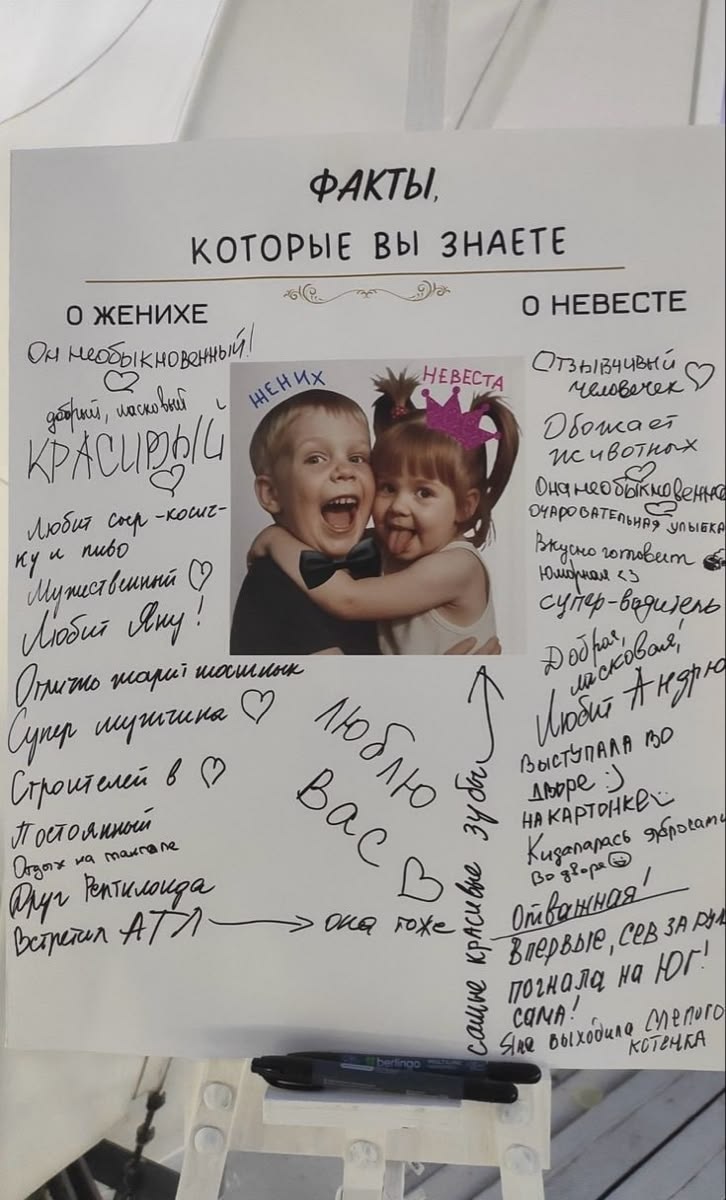 ФАКТЫ,
КОТОРЫЕ ВЫ ЗНАЕТЕ
О ЖЕНИХЕ
Он необыкновенный!
добрый, ласковый
КРАСИВЫЙ
Любит сыр-косич-
ку и пиво
Мужественный
Любит Яну!
Отлично жарит шашлык
Супер мужчина
Строителей в
Постоянный
Отдых на
Друг Рептилоида
Встретил АТЛ → она тоже
ЖЕНИХ
НЕВЕСТА
ЛЮБЛЮ
ВАС
самые красивые зубы
О НЕВЕСТЕ
Отзывчивый
человечек
Обожает
животных
Она необыкновенна
ОЧАРОВАТЕЛЬНАЯ УЛЫБКА
Вкусно готовит
Юморная <3
супер-водитель
Добрая,
ласковая!
Любит Андрю
ВЫСТУПАЛА ВО
ДВОРЕ :)
НА КАРТОНКЕ
Кидалась
во дворе
Отважная!
Впервые, СЕВ ЗА РУЛ
ПОГНАЛА НА ЮГ!
САМА!
Яна ВЫХОДИЛА СЛЕПОГО
КОТЕНКА
berlingo